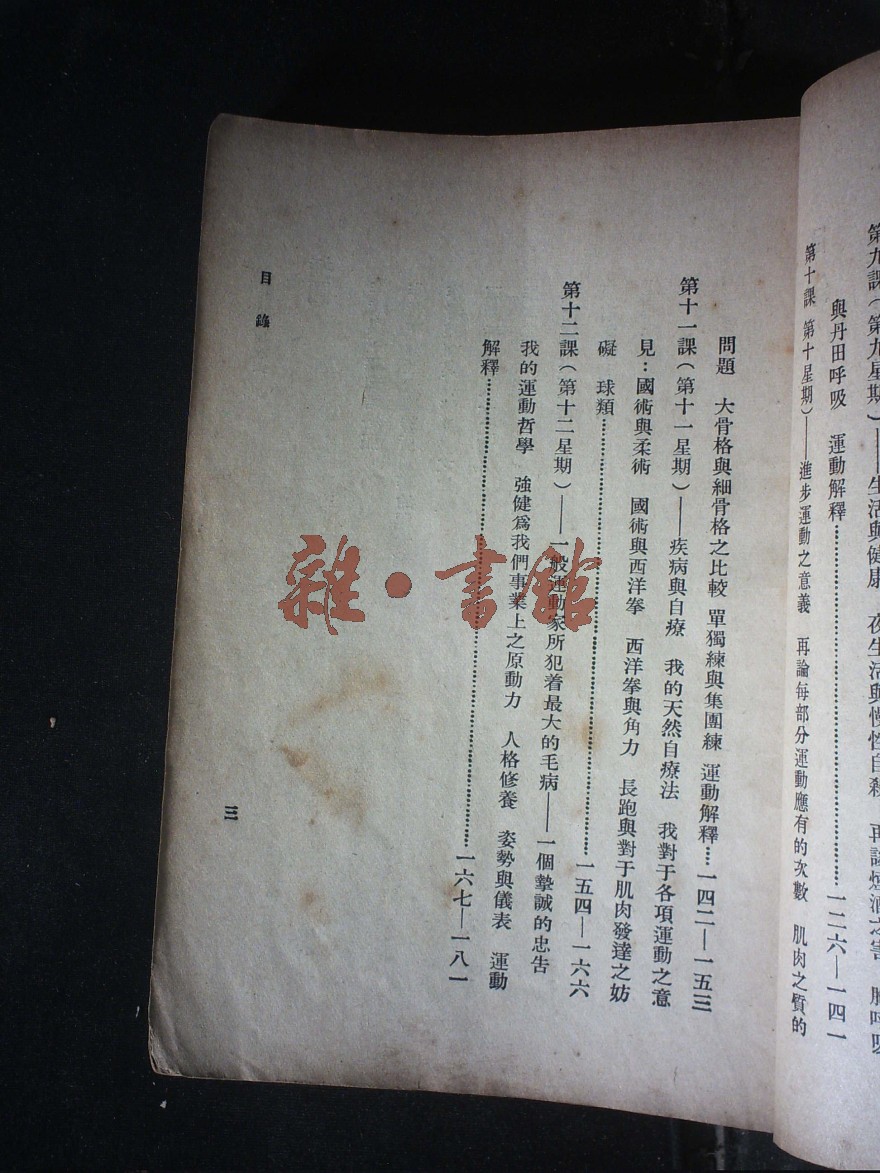 第九課(第九星期)——生活與健康　夜生活與慢性自殺　再談煙酒之害　胸呼吸
與丹田呼吸　運動解釋…………一二六—一四一
第十課　第十星期)——進步運動之意義　再論每部分運動應有的次數　肌肉之質的
問題　大骨格與細骨格之比較　單獨練與集團練　運動解釋…一四二—一五三
第十一課(第十一星期)——疾病與自療　我的天然自療法　我對于各項運動之意
見：國術與柔術　國術與西洋拳　西洋拳與角力　長跑與對于肌肉發達之妨
礙　球類…………一五四—一六六
第十二課(第十二星期)——一般運動家所犯着最大的毛病——一個摯誠的忠告
我的運動哲學　強健爲我們事業上之原動力　人格修養　姿勢與儀表　運動
解釋…………一六七—一八一
目錄
三
雜·書館